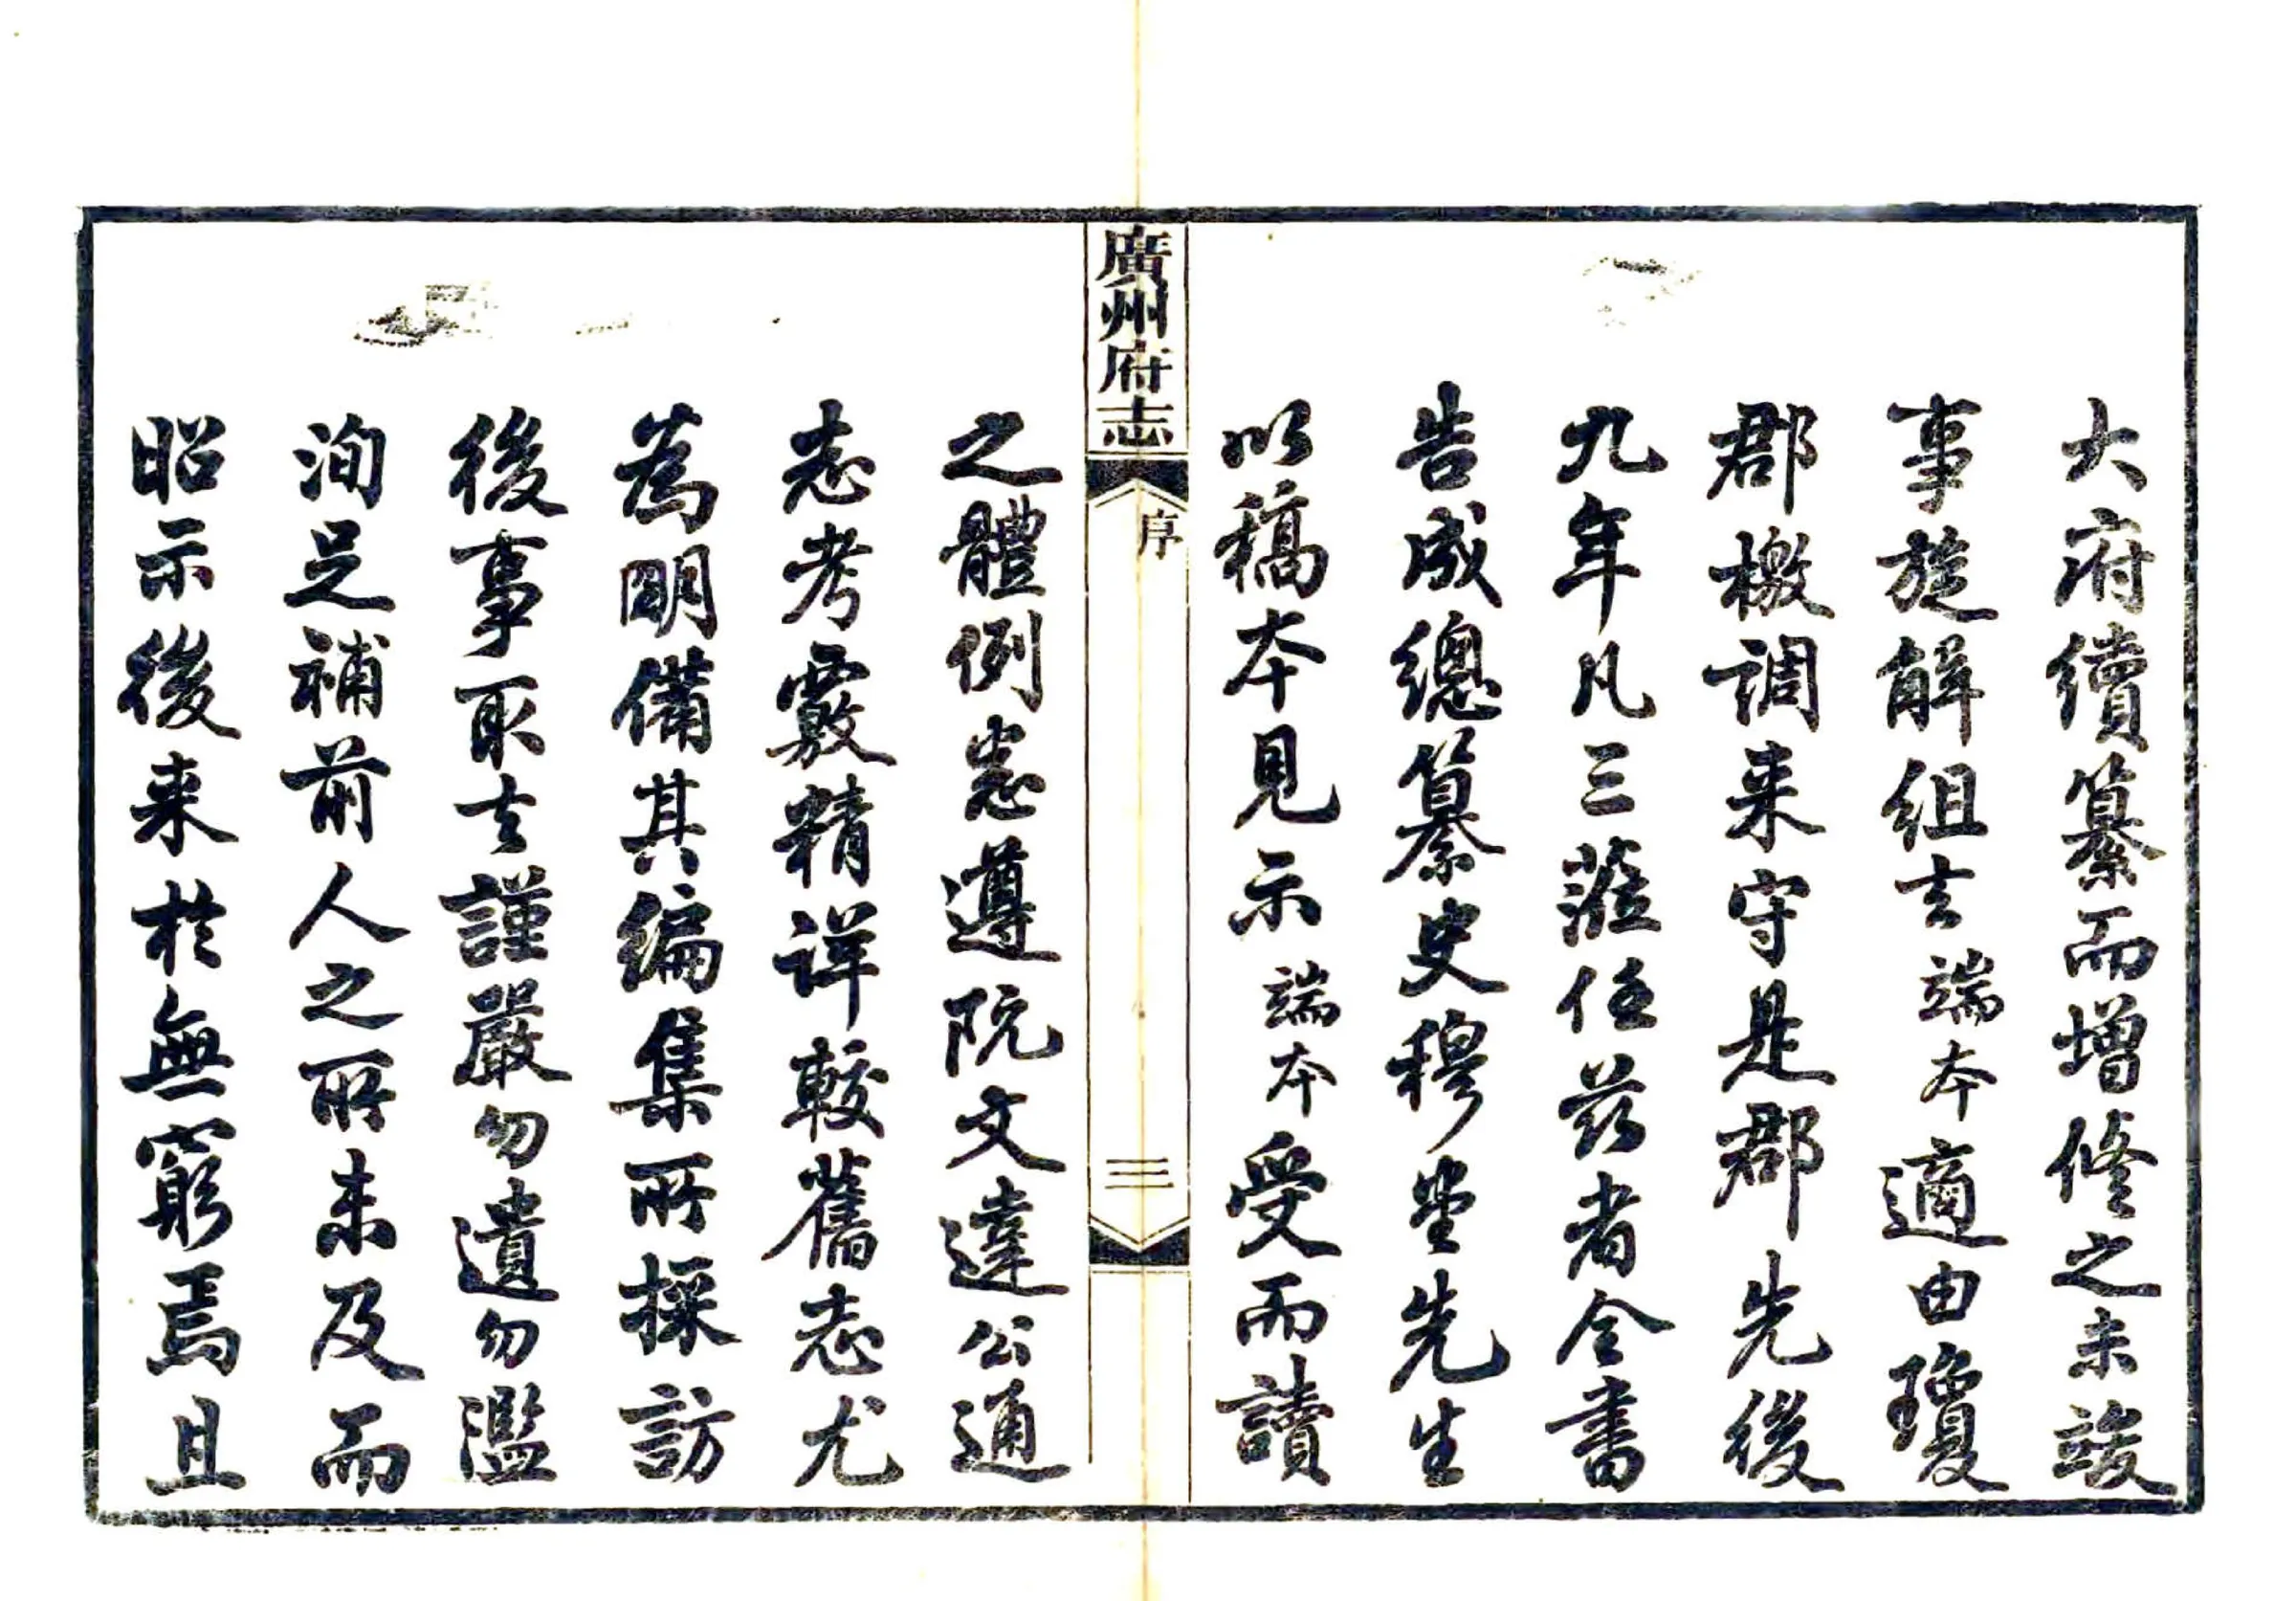 大府續纂而增修之未竣
事旋解組去端本適由瓊
郡檄調来守是郡先後
九年凡三蒞任茲者今書
告成總纂史穆堂先生
以稿本見示端本受而讀
廣州府志
序
三
之體例悉遵阮文達公通
志考覈精詳較舊志尤
為明備其編集所採訪
後事取去謹嚴勿遺勿濫
洵足補前人之所未及而
昭示後来於無窮焉且